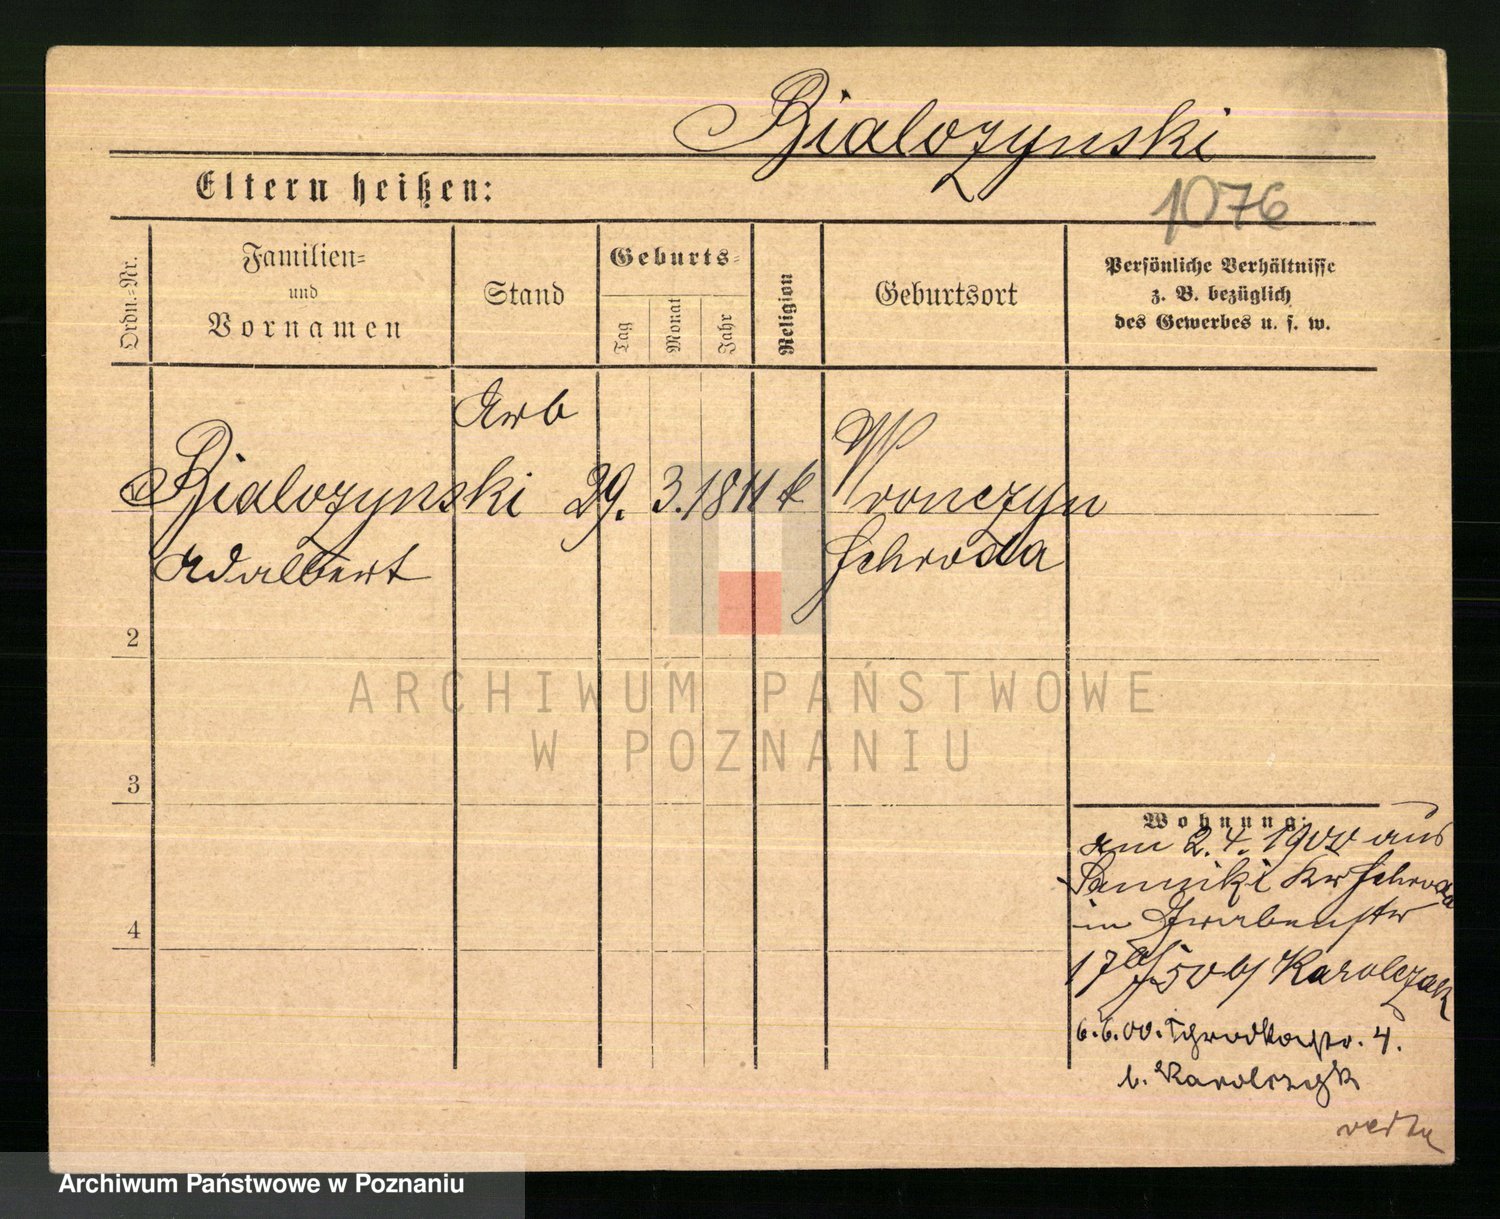 Bialozynski
Eltern heißen:
1076
Ordn.-Nr.
Familien-
und
Vornamen
Stand
Geburts-
Tag
Monat
Jahr
Religion
Geburtsort
Persönliche Verhältnisse
z. B. bezüglich
des Gewerbes u. s. w.
Arb
Bialozynski 29. 3. 18 k Wronczyn
Adalbert Schroda
2
ARCHIWUM PAŃSTWOWE
W POZNANIU
3
Wohnung:
am 2.4.1900 aus
Sanniki Kr Schroda
in Grabenstr
4
17 b/ Karolczak
6.6.00. Schrodkastr. 4.
b. Karolczak
Archiwum Państwowe w Poznaniu